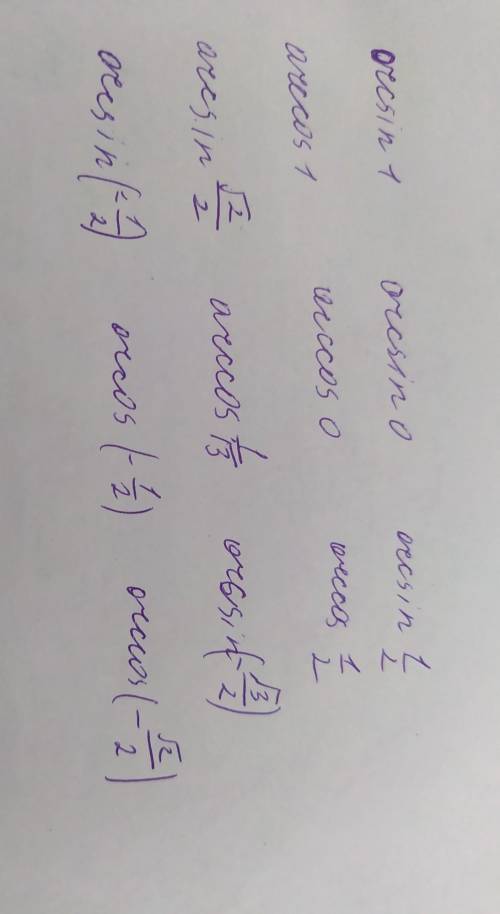 arcsin 1 arcsin 0 arcsin 1/2
arccos 1 arccos 0 arccos 1/2
arcsin √2/2 arccos 1/√3 arcsin(-√3/2)
arcsin(-1/2) arcos(-1/2) arccos(-√2/2)